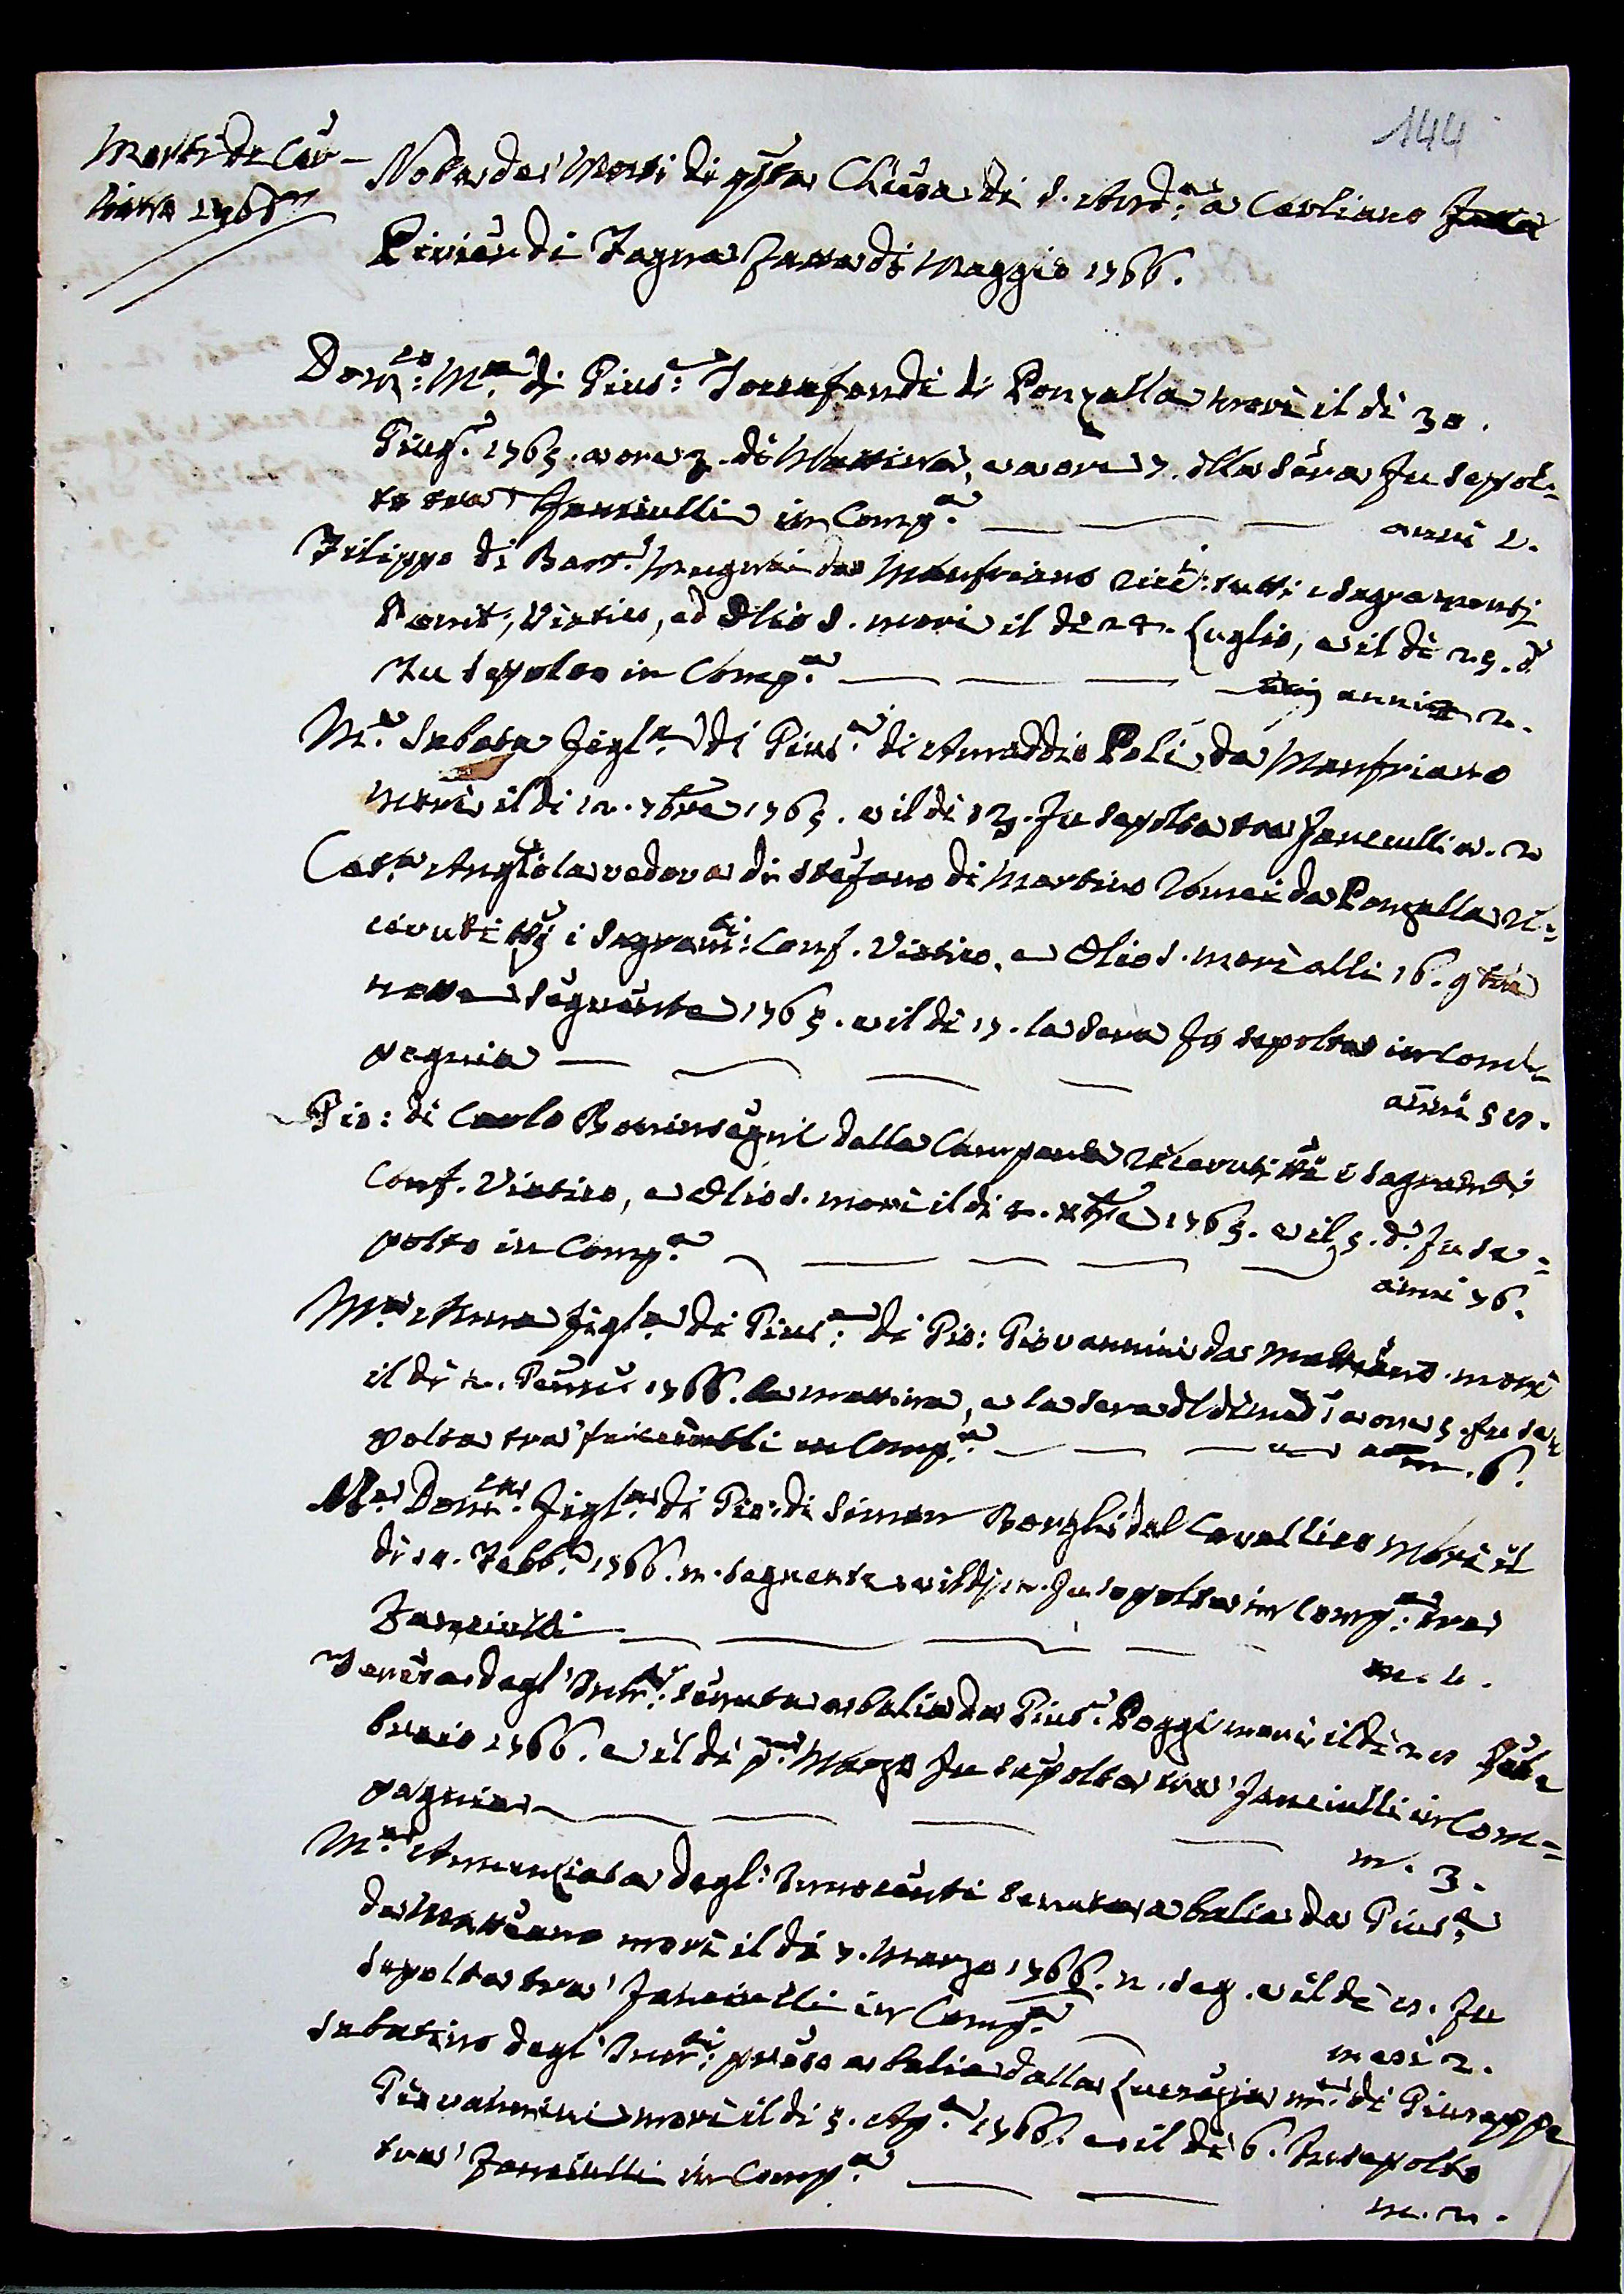 144
Morti di Cer-
liano 1765
Nota de' Morti di qsta Chiesa di S. And.a a Cerliano
Pivieri di Fagna fatta di Maggio 1766.
Dom.co M.a di Gius.e Torrefondi di Ponzalla morì il dì 30.
Giug.o 1765. a ore 3. di Mattina, e a ore 7. della sera fu sepol=
to tra' Fanciulli in Comp.a anni 2.
Filippo di Bart.o Mugnai da Monfriano rice: tutti i Sagramenti
Penit, Viatico, ed Olio S. morì il dì 24. Luglio, e il dì 25. d.o
fu sepolto in Comp.a anni
M.a Sabata figl.a di Gius.e di Amaddio Poli da Monfriano
morì il dì 12. 7bre 1765. e il dì 13. fu sepolta tra fanciulli a. 2
Cat.a Angiola vedova di Stefano di Martino Tomei da Ponzalla ri=
cevuti tti i Sagram.ti: Conf. Viatico, e Olio S. morì alli 16. 9bre
notte seguente 1765. e il dì 17. la sera fu sepolta in Com=
pagnia anni
Gio: di Carlo Boninsegni dalla Campana ricevuti tti i Sagramti
Conf. Viatico, e Olio S. morì il dì 4. Xbre 1765. e il 5. d.o fu se=
polto in Comp.a anni 76.
M.a Anna figl.a di Gius.e di Gio: Giovannini da Mattiano morì
il dì 2. Genn. 1766. la mattina, e la sera dl dì med.o a ore 5. fu se=
polta tra' fanciulli in Comp.a m. 6.
M.a Dom.ca figl.a di Gio: di Simon Borghi dal Cavallico morì il
dì Febb.o 1766. n. seguente e il dì fu sepolta in Comp.a tra
Fanciulli
Teresa degl' Inn.ti: tenuta a balia da Gius.e Poggi morì il dì Feb=
braio 1766. e il dì p.mo Marzo fu sepolta tra' fanciulli in Com=
pagnia m. 3.
M.a Annunziata degl' Innocenti tenuta a balia da Gius.e
da Mattiano morì il dì 7. Marzo 1766. n. seg. e il dì fu
sepolta tra' fanciulli in Comp.a mesi 2.
Sabatino degl' Inn.ti: preso a balia dalla Lucrezia m.e di Giuseppe
Giovannini morì il dì 5. Ap.e 1766. e il dì 6. fu sepolto
tra' fanciulli in Comp.a m. 2.